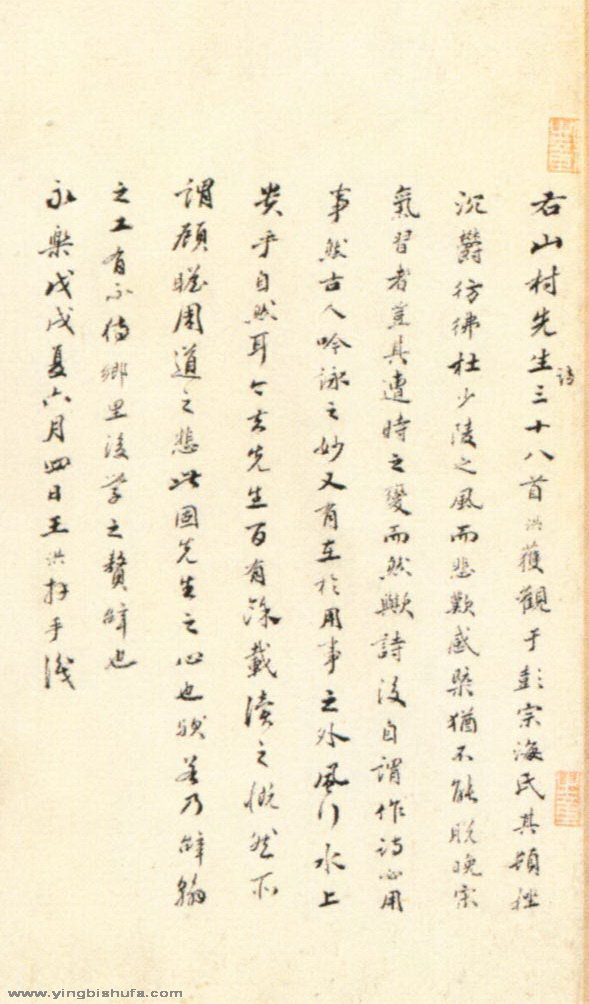 右山村先生詩三十八首洪獲觀于彭宗海氏其頓挫
沉欝彷彿杜少陵之風而悲歎感槩猶不能脱晚宋
氣習者豈其遭時之變而然歟詩後自謂作詩必用
事然古人吟詠之妙又有在於用事之外風行水上
貴乎自然耳今去先生百有餘載讀之慨然所
謂顧瞻周道之悲此固先生之心也欤若乃辭翰
之工有不待鄉里後學之贅辭也
永樂戊戌夏六月四日王洪拜手識
www.yingbishufa.com